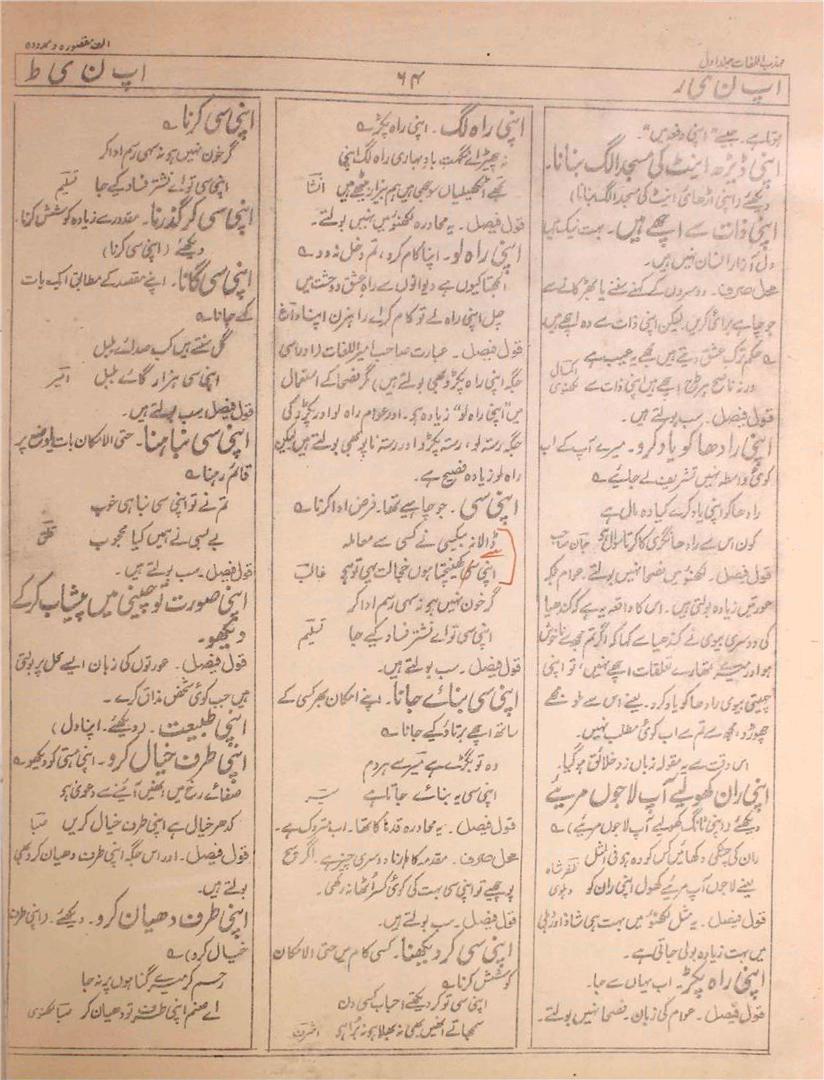 مہذب اللغات جلد اول
الف مقصورہ و ممدودہ
اپ ن ی ر
۶۴
اپ ن ی ط
ہوتا ہے۔ جیسے "اپنی دفعہ میں"۔
اپنی ڈیڑھ اینٹ کی مسجد الگ بنانا۔
دیکھئے (اپنی اڑھائی اینٹ کی مسجد الگ بنانا)
اپنی ذات سے اچھے ہیں۔ بہت نیک ہیں
دل آزار انسان نہیں ہیں۔
محل صرف۔ دوسروں کے کہنے سننے یا بھڑکانے سے
جو چاہے برائی کریں لیکن اپنی ذات سے وہ اچھے ہیں
حکم ترک عشق دیتے ہیں مجھے یہ عیب ہے
ورنہ ناصح ہر طرح اچھے ہیں اپنی ذات سے
قول فیصل۔ سب بولتے ہیں۔
اپنی رادھا کو یاد کرو۔ میرے آپ کے اب
کوئی واسطہ نہیں تشریف لے جائیے
رادھا کو اپنی یاد کرے کیا وہ مال ہے
کون اس سے رادھا نگری کا کرتا سوال ہے جان صاحب
قول فیصل۔ لکھنؤ میں فصحا نہیں بولتے۔ عوام جگہ
عورتیں زیادہ بولتی ہیں۔ اس کا واقعہ یہ ہے کہ کندھیا
کی دوسری بیوی نے کندھیا سے کہا کہ اگر تم مجھ سے ناخوش
ہو اور میرے تمہارے تعلقات اچھے نہیں، تو اپنی
چہیتی بیوی رادھا کو یاد کرو۔ یعنے اس سے ملو مجھے
چھوڑو، مجھ سے تم سے اب کوئی مطلب نہیں۔
اس وقت سے یہ مقولہ زبان زد خلائق ہو گیا۔
اپنی ران کھولیے آپ لاجوں مریے
دیکھئے (اپنی ٹانگ کھولیے آپ لاجوں مریے)
ران کی چٹکی دکھائیں کس کو وہ ہوئی مثل ظفر شاہ
یعنے لاجوں آپ مریے کھول اپنی ران کو دہلوی
قول فیصل۔ یہ مثل لکھنؤ میں بہت ہی شاذ اور دلی
میں بہت زیادہ بولی جاتی ہے۔
اپنی راہ پکڑ۔ اب یہاں سے جا۔
قول فیصل۔ عوام کی زبان۔ فصحا نہیں بولتے۔
اپنی راہ لگ۔ اپنی راہ پکڑ
نہ چھیڑ اے نکہت باد بہاری راہ لگ اپنی
تجھے اٹھکیلیاں سوجھی ہیں ہم بیزار بیٹھے ہیں انشا
قول فیصل۔ یہ محاورہ لکھنؤ میں نہیں بولتے۔
اپنی راہ لو۔ اپنا کام کرو، تم دخل نہ دو
الجھتا کیوں ہے دیوانوں سے راہ عشق و وحشت میں
چل اپنی راہ لے تو کام کر اے راہزن اپنا داغ
قول فیصل۔ عبارت صاحب امیر اللغات (اور اسی
جگہ اپنی راہ پکڑو بھی بولتے ہیں) مگر فصحا کے استعمال
میں "اپنی راہ لو" زیادہ ہے۔ اور عوام راہ لو اور پکڑو کی
جگہ رستہ لو، رستہ پکڑو اور رستہ ناپو بھی بولتے ہیں لیکن
راہ لو زیادہ فصیح ہے۔
اپنی سی۔ جو چاہیے تھا۔ فرض ادا کرنا
ڈالا نہ بیکسی نے کسی سے معاملہ
اپنی سے کھینچتا ہوں خجالت ہی کیوں نہ ہو غالب
گر خون نہیں ہو نہ سہی رسم ادا کر
اپنی سی تو اے نشتر فساد کیے جا تسلیم
قول فیصل۔ سب بولتے ہیں۔
اپنی سی بنائے جانا۔ اپنے امکان بھر کسی کے
ساتھ اچھے برتاؤ کیے جانا
وہ تو بگڑے ہے میر سے ہر دم
اپنی سی یہ بنائے جاتا ہے میر
قول فیصل۔ یہ محاورہ قدما کا تھا۔ اب متروک ہے۔
محل صرف۔ مقدمہ کا ہارنا دوسری چیز ہے۔ اگر سچ
پوچھیے تو اپنی سی بہت کی کوئی کسر اٹھا نہ رکھی۔
قول فیصل۔ سب بولتے ہیں۔
اپنی سی کر دیکھنا۔ کسی کام میں حتی الامکان
کوشش کرنا
اپنی سی تو کر دیکھتے احباب کسی دن
سمجھاتے انھیں بھی نہ بھلا ہو نہ برا ہو اشرف
اپنی سی کرنا
گر خون نہیں ہو نہ سہی رسم ادا کر
اپنی سی تو اے نشتر فساد کیے جا تسلیم
اپنی سی کر گذرنا۔ مقدور سے زیادہ کوشش کرنا۔
دیکھئے (اپنی سی کرنا)
اپنی سی گانا۔ اپنے مقصد کے مطابق ایک بات
کہے جانا
گل سنتے ہیں کب صدائے بلبل
اپنی سی ہزار گائے بلبل امیر
قول فیصل۔ سب بولتے ہیں۔
اپنی سی نباہنا۔ حتی الامکان بات یا وضع پر
قائم رہنا
تم نے تو اپنی سی نباہی خوب
بے بسی نے ہمیں کیا محجوب قلق
قول فیصل۔ سب بولتے ہیں۔
اپنی صورت تو چینی میں پیشاب کر کے
دیکھو۔
قول فیصل۔ عورتوں کی زبان ایسے محل پر بولتی
ہیں جب کوئی شخص مذاق کرے۔
اپنی طبیعت۔ (دیکھئے۔ اپنا دل)
اپنی طرف خیال کرو۔ اپنی ہستی کو دیکھو
صفائے رخ میں انھیں آئینے سے دعویٰ ہو
کدھر خیال ہے اپنی طرف خیال کریں صبا
قول فیصل۔ اور اس جگہ اپنی طرف دھیان کرو بھی
بولتے ہیں۔
اپنی طرف دھیان کرو۔ دیکھئے۔ (اپنی طرف
خیال کرو)
رحم کر میرے گناہوں پر نہ جا
اے صنم اپنی طرف تو دھیان کر صبا لکھنوی